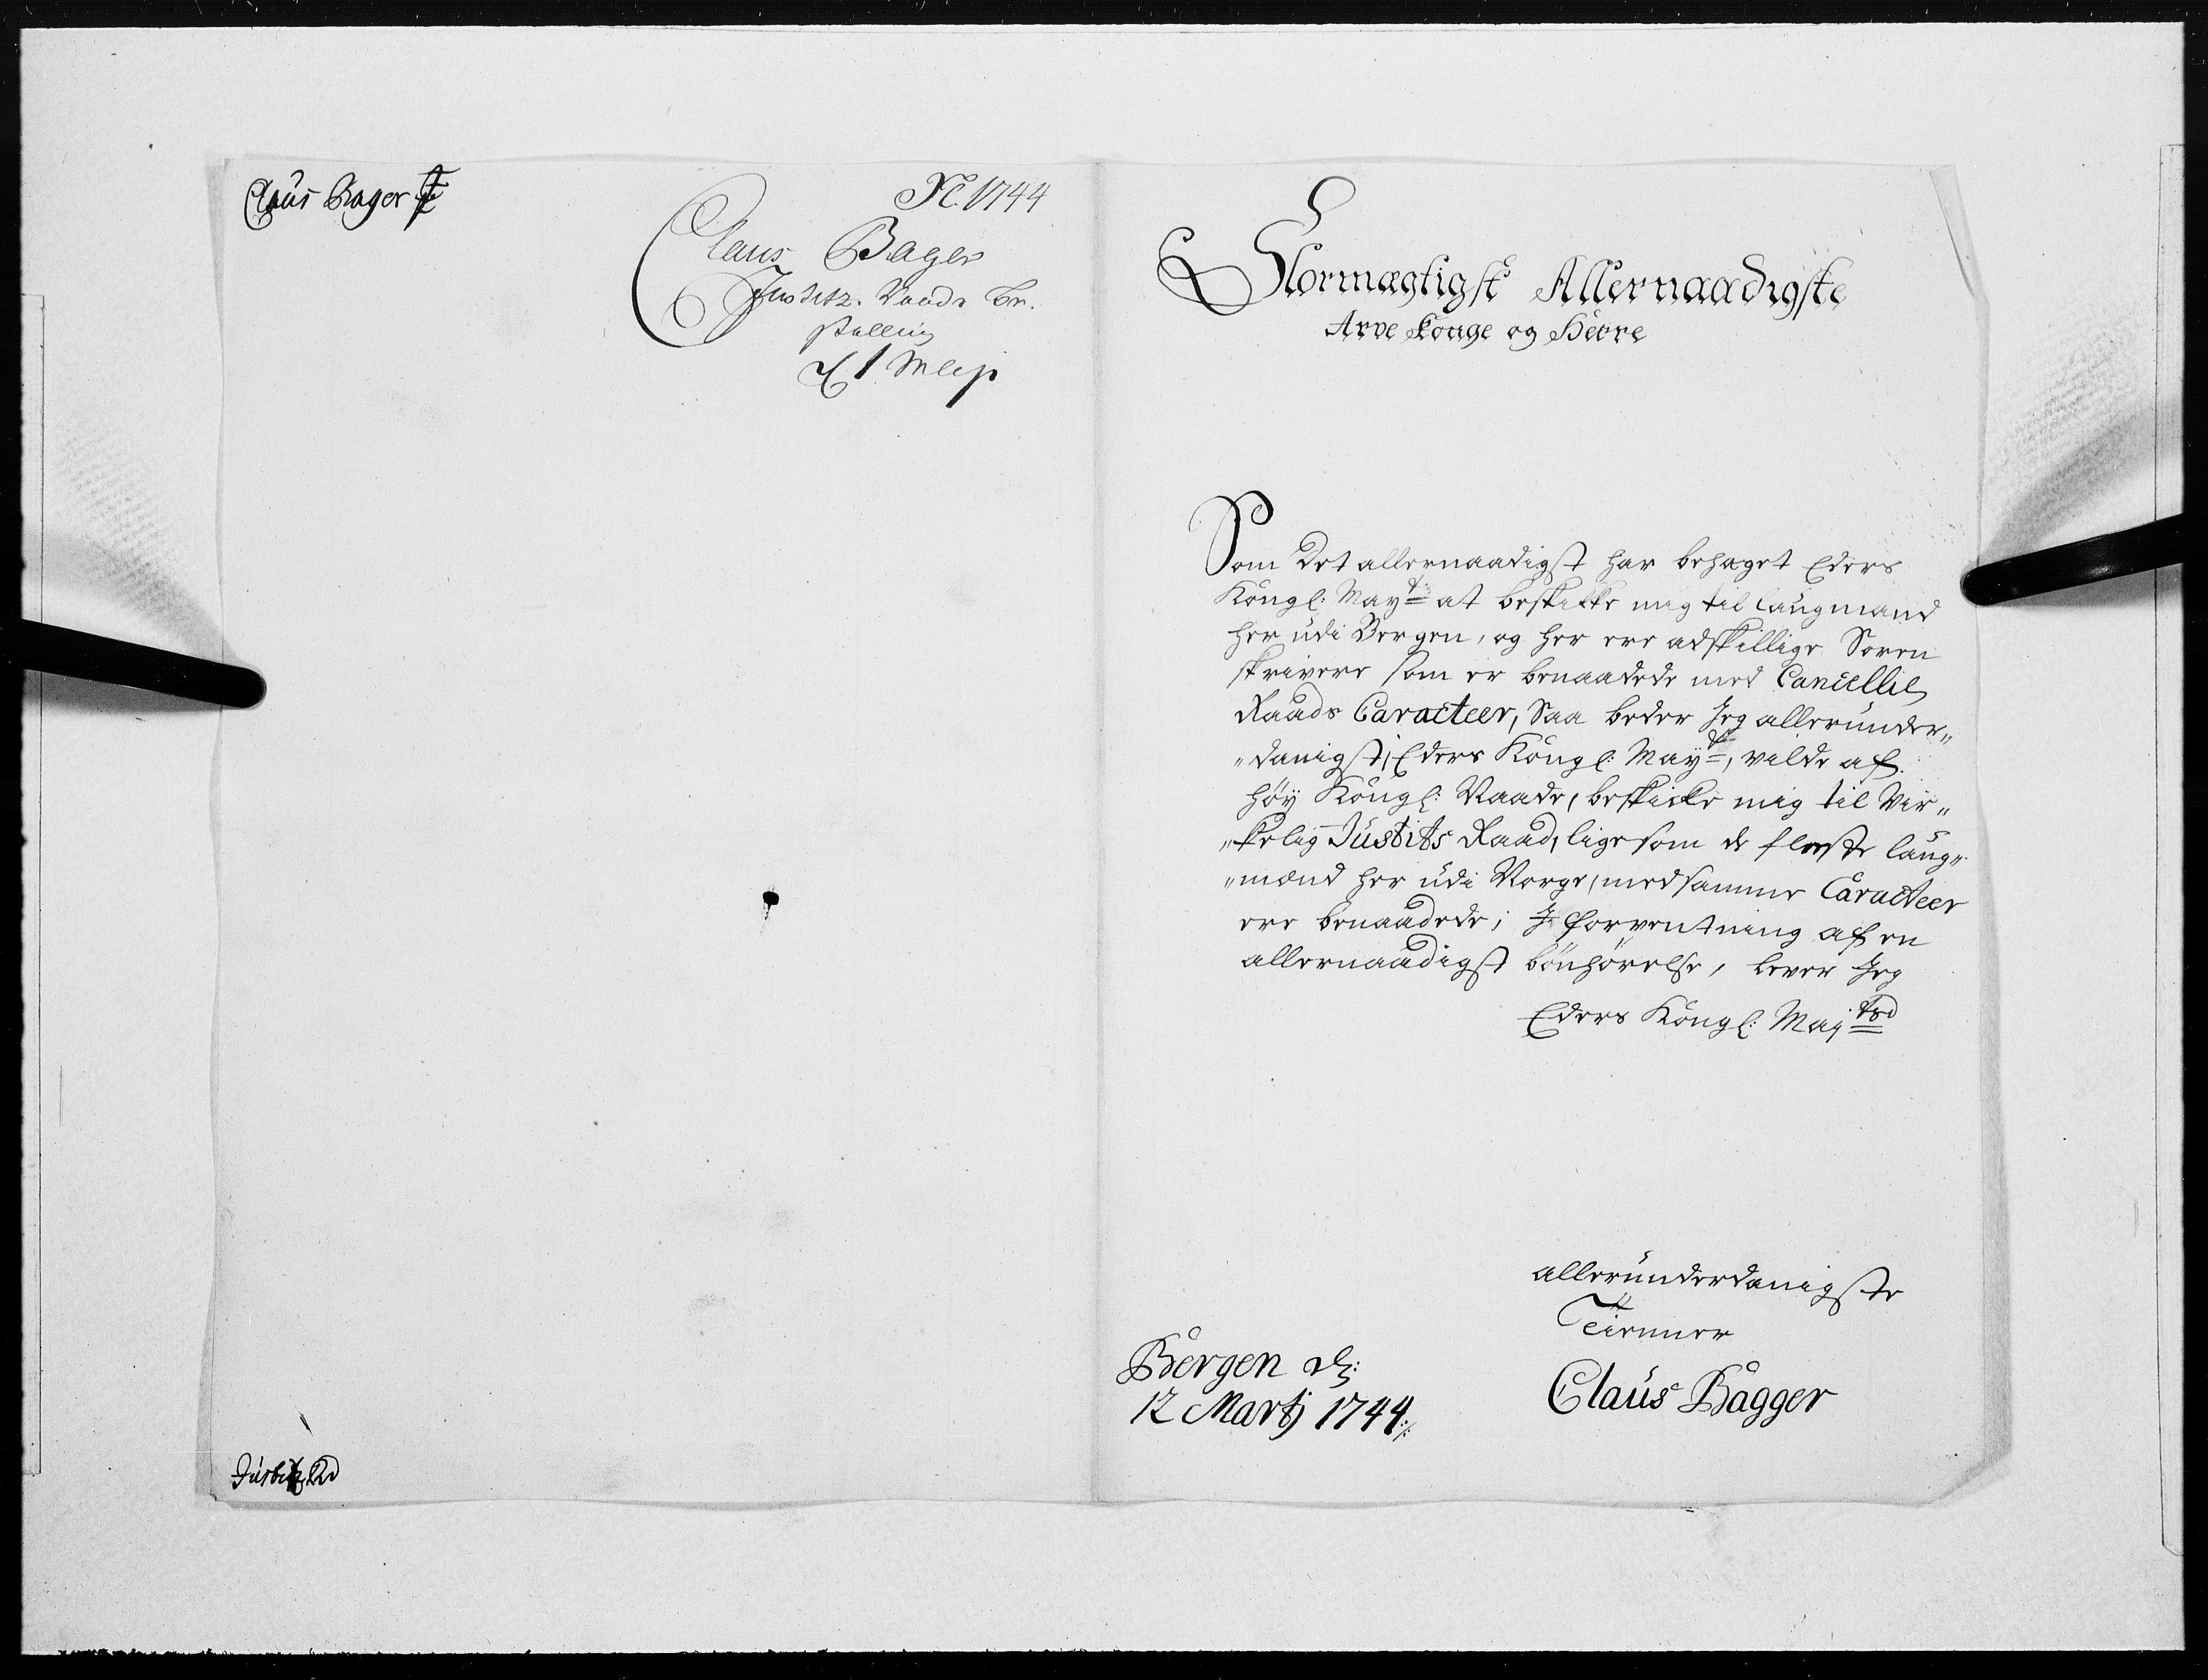 Claus Bager
N. 1744
Claus Bager
Justitz. Raads Be.
stalling
d 1 Maji
Justitz Rd
Stormægtigst Allernaadigste
Arve Konge og Herre
Som Det allernaadigst har behaget Eders
Kongl: Mayt: at beskikke mig til Laugmand
her udi Bergen, og her ere adskillige Soren
skrivere som er benaadede med Cancellie
Raads Caracteer, Saa beder Jeg allerunder„
„danigst, Eders Kongl: Mayt:, vilde af
høy Kongl: Naade, beskicke mig til Vir„
„kelig Justits Raad, ligesom de fleste Laug„
„mænd her udi Norge, med samme Caracteer
ere benaadede; I forventning af en
allernaadigst bönhörelse, lever Jeg
Eders Kongl: Majts
allerunderdanigste
Tienner
Claus Bagger
Bergen d:
12 Martj 1744